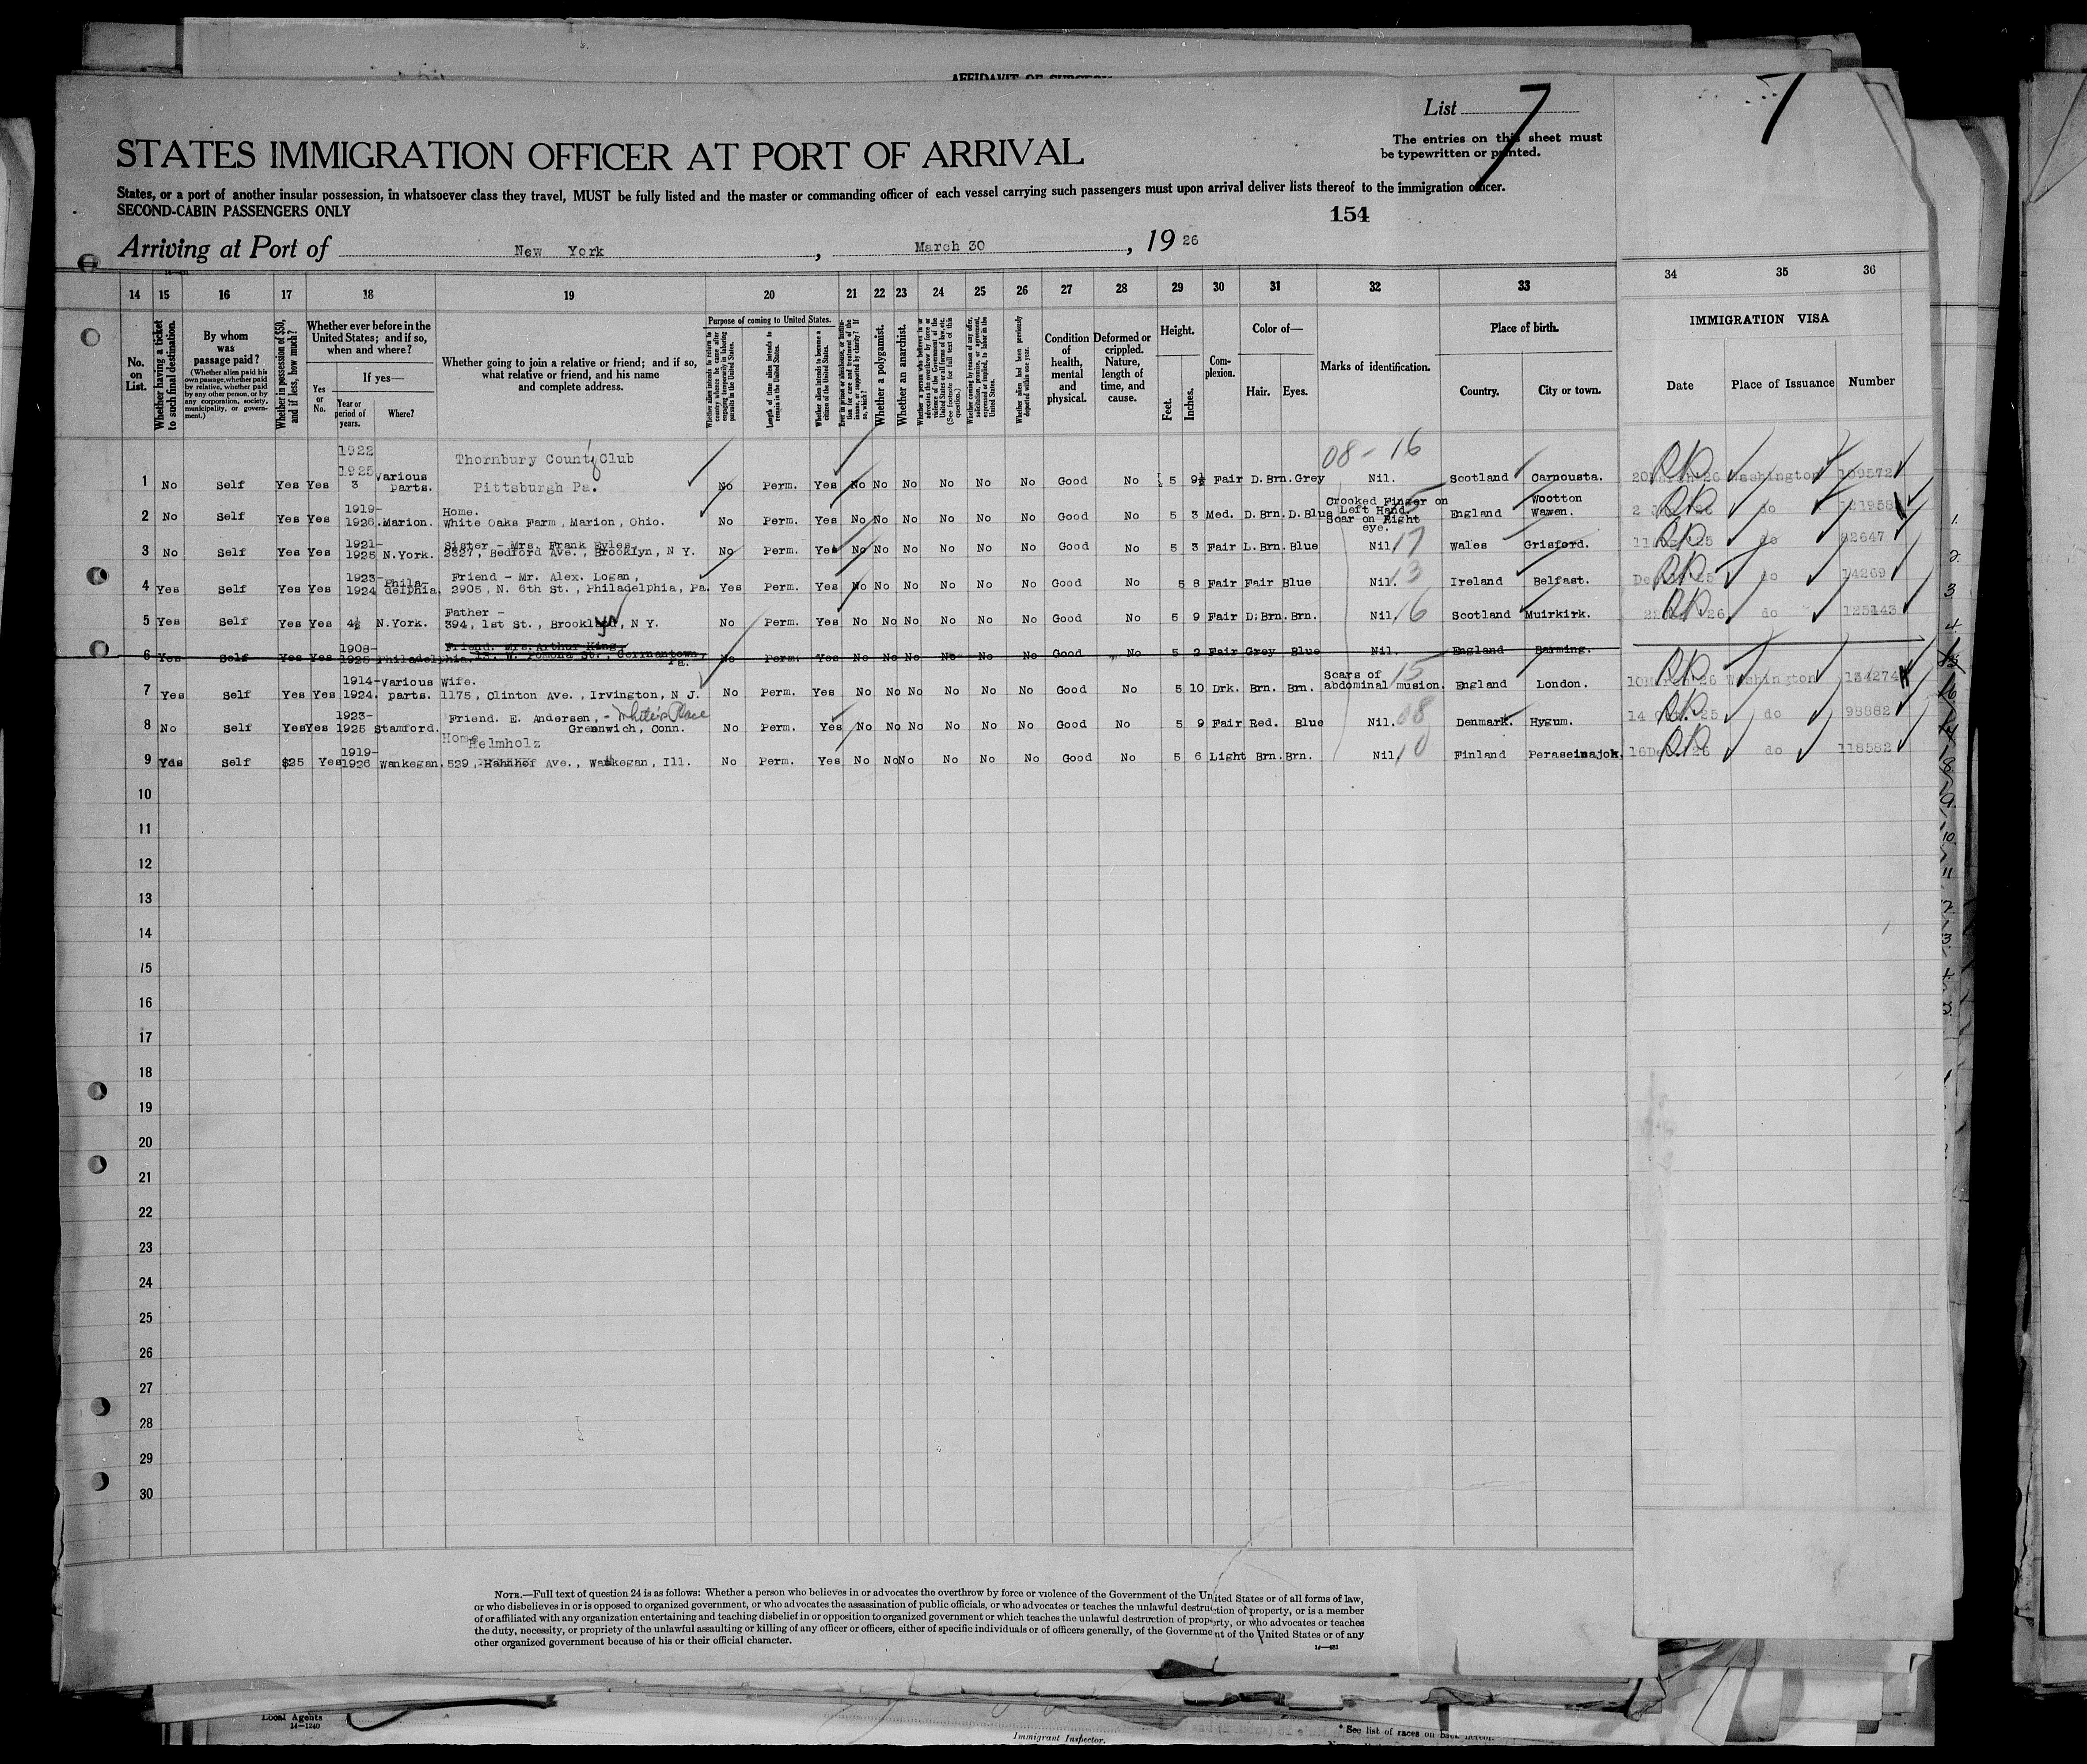 AFFIDAVIT OF SURGEON
List 7
7
The entries on this sheet must
be typewritten or printed.
STATES IMMIGRATION OFFICER AT PORT OF ARRIVAL
States, or a port of another insular possession, in whatsoever class they travel, MUST be fully listed and the master or commanding officer of each vessel carrying such passengers must upon arrival deliver lists thereof to the immigration officer.
SECOND-CABIN PASSENGERS ONLY
154
Arriving at Port of New York, March 30, 1926
14 15 16 17 18 19 20 21 22 23 24 25 26 27 28 29 30 31 32 33 34 35 36
No. on List.
Whether having a ticket to such final destination.
By whom was passage paid?
(Whether alien paid his own passage, whether paid by relative, whether paid by any other person, or by any corporation, society, municipality, or government.)
Whether in possession of $50, and if less, how much?
Whether ever before in the United States; and if so, when and where?
Yes or No.
If yes—
Year or period of years.
Where?
Whether going to join a relative or friend; and if so, what relative or friend, and his name and complete address.
Purpose of coming to United States.
Whether alien intends to return to country whence he came after engaging temporarily in laboring pursuits in the United States.
Length of time alien intends to remain in the United States.
Whether alien intends to become a citizen of the United States.
Whether a polygamist.
Whether an anarchist.
Whether alien had been previously deported within one year.
Condition of health, mental and physical.
Deformed or crippled. Nature, length of time, and cause.
Height.
Feet. Inches.
Complexion.
Color of—
Hair. Eyes.
Marks of identification.
Place of birth.
Country. City or town.
IMMIGRATION VISA
Date Place of Issuance Number
08-16
1 No Self Yes Yes 1922 1925 3 Various parts. Thornbury County Club Pittsburgh Pa. No Perm. Yes No No No No No No Good No 5 9½ Fair D.Brn. Grey Nil. Scotland Carnousta. Washington 109572
2 No Self Yes Yes 1919-1926. Marion. Home. White Oaks Farm, Marion, Ohio. No Perm. Yes No No No No No No Good No 5 3 Med. D.Brn. D.Blue Crooked Finger on Left Hand. Scar on Right eye. England Wootton Wawen. do
3 No Self Yes Yes 1921-1925 N.York. Sister - Mrs. Frank Eyles, 2327, Bedford Ave., Brooklyn, N Y. No Perm. Yes No No No No No No Good No 5 3 Fair L.Brn. Blue Nil. 17 Wales Grisford. do 82647
4 Yes Self Yes Yes 1923-1924 Philadelphia. Friend - Mr. Alex. Logan, 2905, N. 6th St., Philadelphia, Pa. Yes Perm. Yes No No No No No No Good No 5 8 Fair Fair Blue Nil. 13 Ireland Belfast. do 14269
5 Yes Self Yes Yes 4½ N.York. Father - 394, 1st St., Brooklyn, N Y. No Perm. Yes No No No No No No Good No 5 9 Fair D.Brn. Brn. Nil. 16 Scotland Muirkirk. do 125143
6 Yes Self Yes Yes 1908-1925 Philadelphia. Friend. Mrs. Arthur King. W. Pomona St., Germantown, Pa. No Perm. Yes No No No No No No Good No 5 2 Fair Grey Blue Nil. England Barming.
7 Yes Self Yes Yes 1914-1924. Various parts. Wife. 1175, Clinton Ave., Irvington, N J. No Perm. Yes No No No No No No Good No 5 10 Drk. Brn. Brn. Scars of abdominal musion. 15 England London. Washington 134274
8 No Self Yes Yes 1923-1925 Stamford. Friend. E. Andersen, - White's Place Greenwich, Conn. No Perm. Yes No No No No No No Good No 5 9 Fair Red. Blue Nil. 08 Denmark. Hygum. do 98882
9 Yes Self $25 Yes 1919-1926 Wankegan. Home Helmholz 529, Hahnhof Ave., Waukegan, Ill. No Perm. Yes No No No No No No Good No 5 6 Light Brn. Brn. Nil. 10 Finland Peraseinajok. do 118582
10
11
12
13
14
15
16
17
18
19
20
21
22
23
24
25
26
27
28
29
30
NOTE.—Full text of question 24 is as follows: Whether a person who believes in or advocates the overthrow by force or violence of the Government of the United States or of all forms of law,
or who disbelieves in or is opposed to organized government, or who advocates the assassination of public officials, or who advocates or teaches the unlawful destruction of property, or is a member
of or affiliated with any organization entertaining and teaching disbelief in or opposition to organized government or which teaches the unlawful destruction of property, or who advocates or teaches
the duty, necessity, or propriety of the unlawful assaulting or killing of any officer or officers, either of specific individuals or of officers generally, of the Government of the United States or of any
other organized government because of his or their official character.
Local Agents
14—1240
Immigrant Inspector.
* See list of races on back hereof.